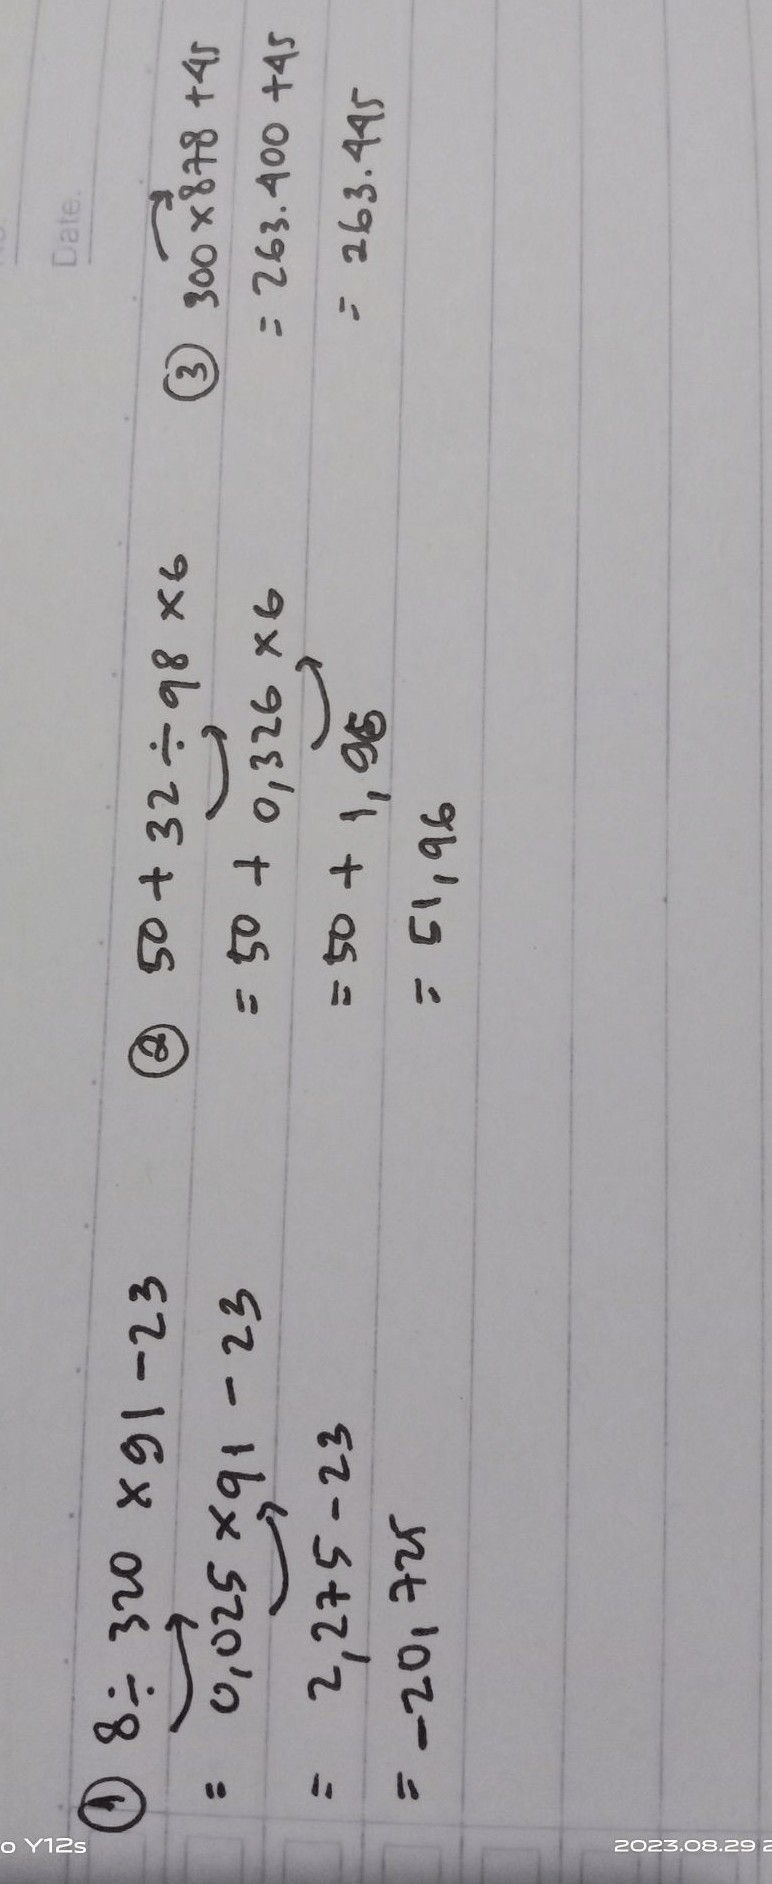 Date.
① 8 ÷ 320 × 91 - 23
= 0,025 × 91 - 23
= 2,275 - 23
= -20,725
② 50 + 32 ÷ 98 × 6
= 50 + 0,326 × 6
= 50 + 1,96
= 51,96
③ 300 × 878 + 45
= 263.400 + 45
= 263.445
o Y12s
2023.08.29 2